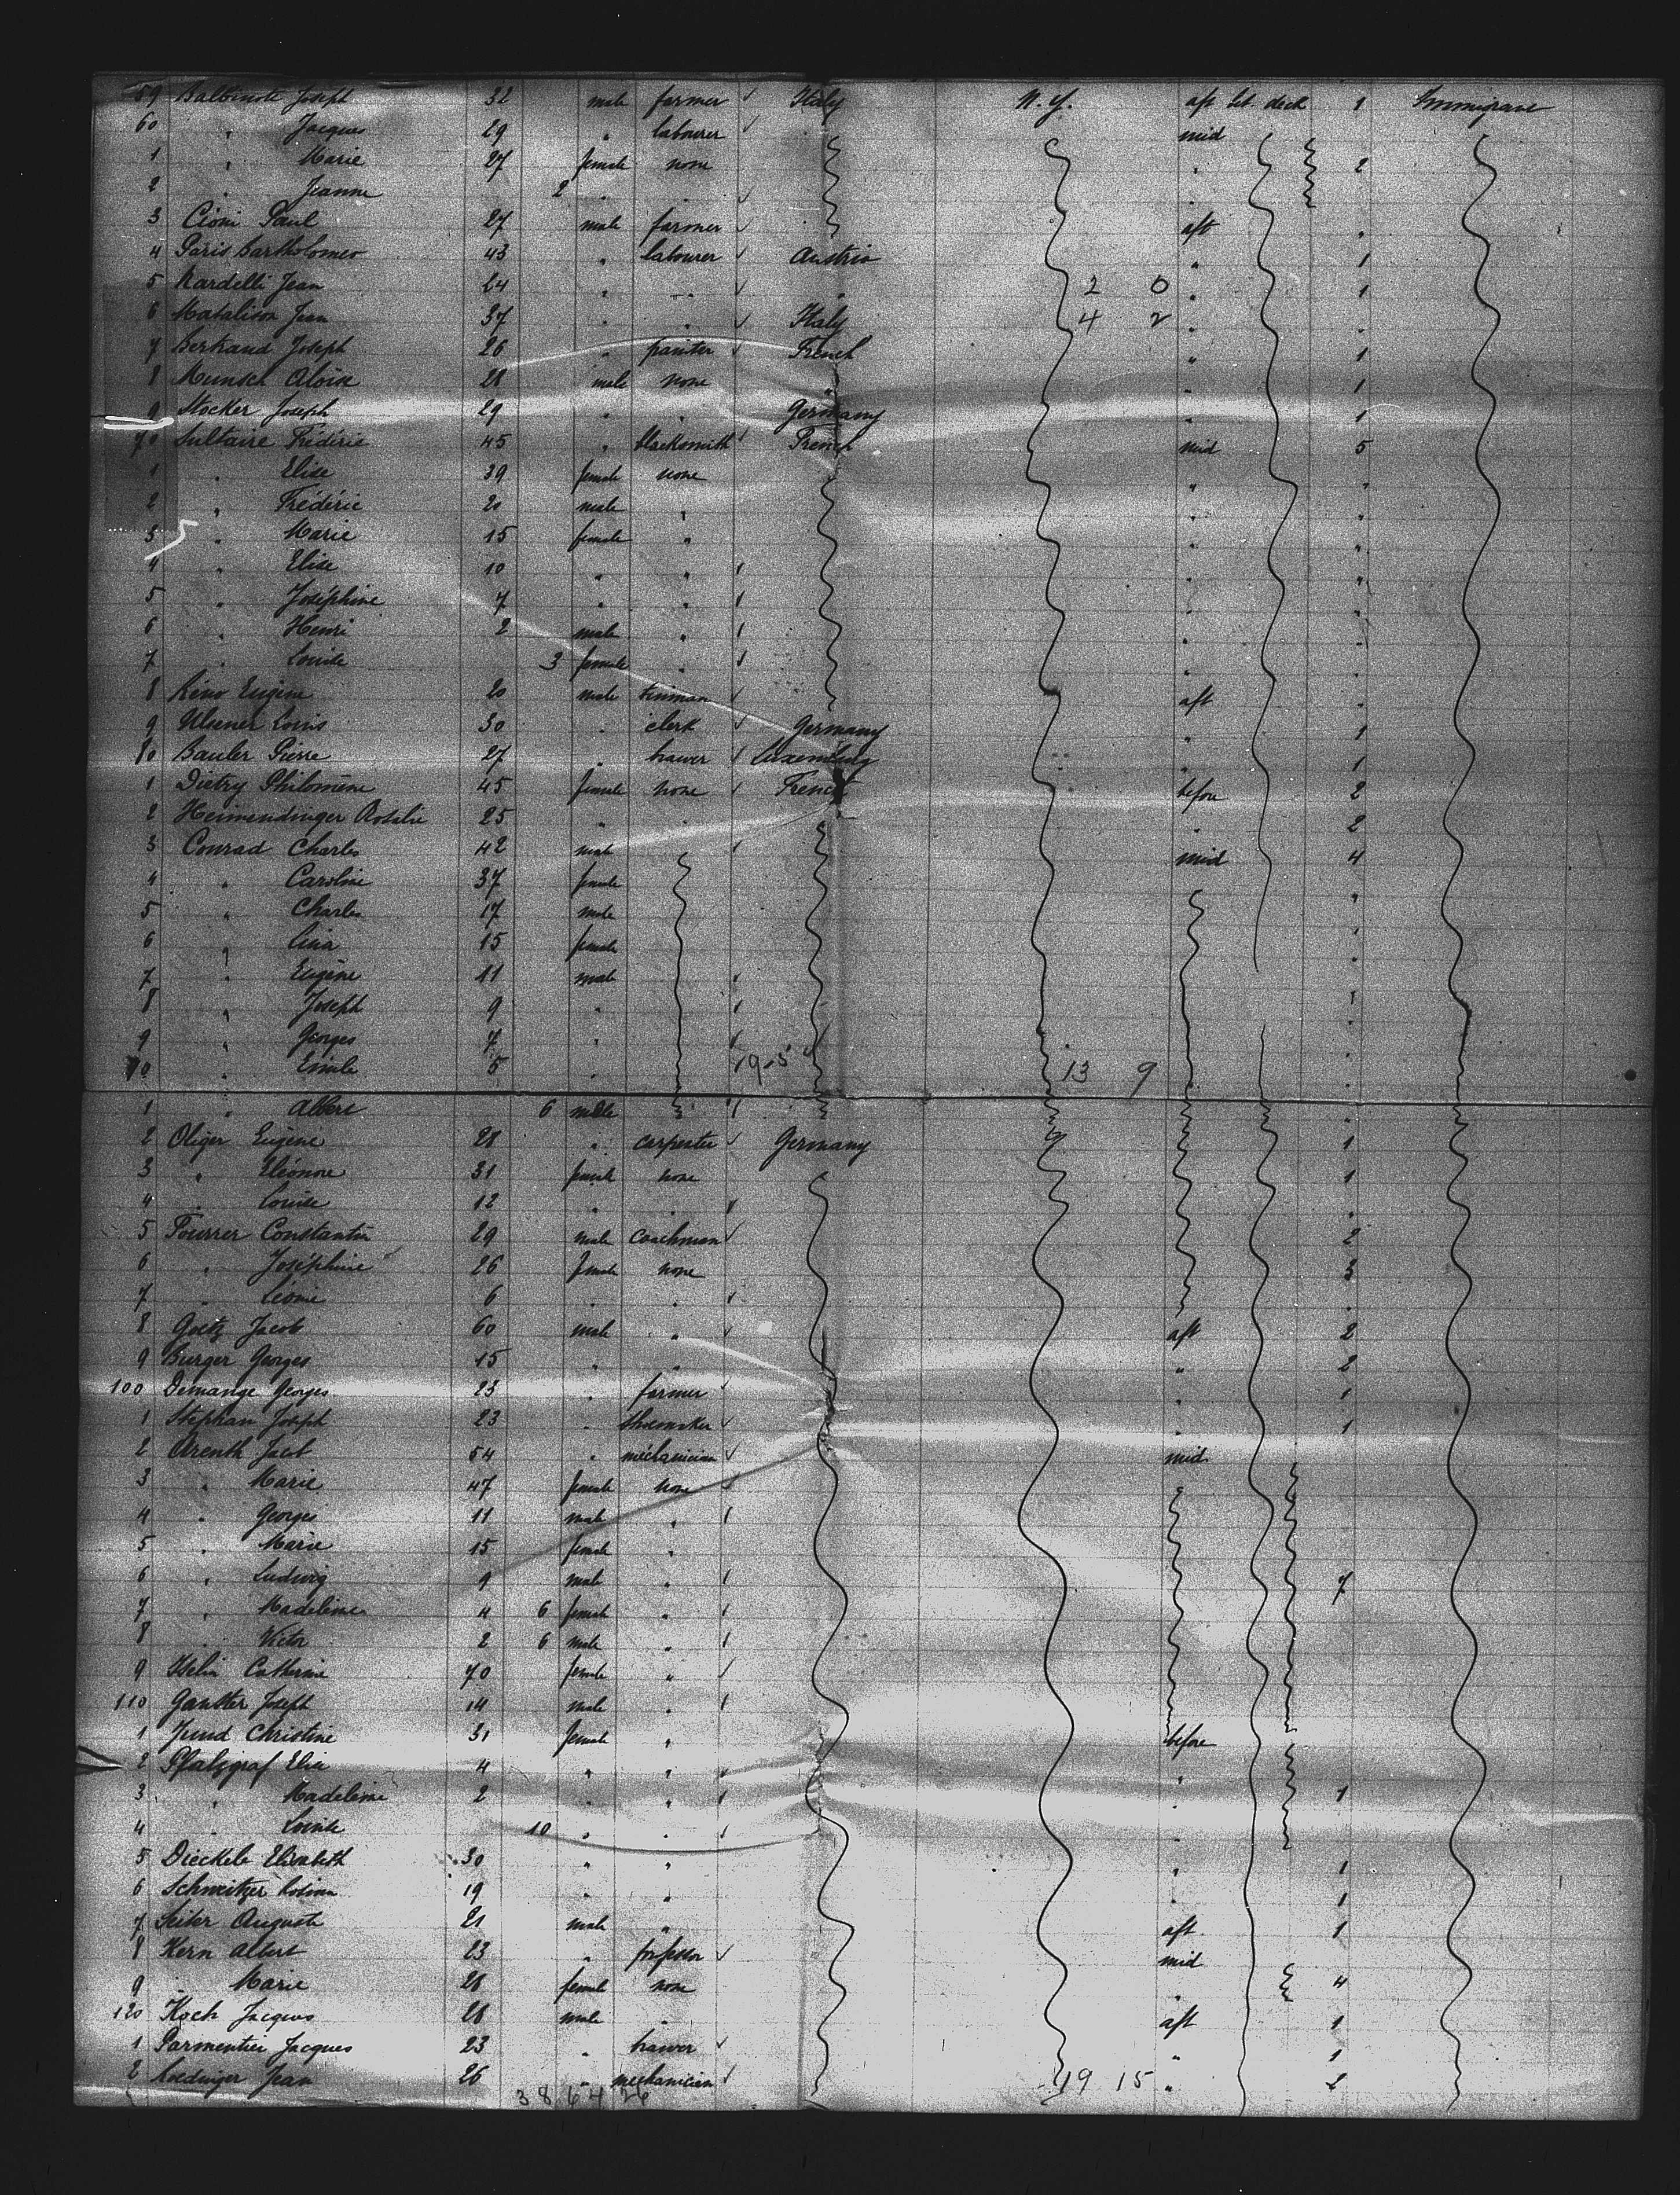 59 Balbinote Joseph 32 male farmer ✓ Italy N. Y. aft bet. deck 1 Immigrant
60 " Jacques 29 " labourer ✓ mid
1 " Marie 27 female none " 2
2 " Jeanne 2 " " ✓ "
3 Cioni Paul 27 male farmer ✓ aft "
4 Paris Bartholomeo 43 " labourer ✓ Austria " 1
5 Nardelli Jean 64 " " ✓ " 2 0 " 1
6 Matalison Jean 37 " " ✓ Italy 4 2 " "
7 Bertrand Joseph 26 " painter ✓ French " 1
8 Munsch Aloïse 28 male none " " 1
9 Stocker Joseph 29 " " Germany " 1
70 Sultaire Frédéric 45 " blacksmith ✓ French mid 5
1 " Elise 39 female none " "
2 " Frédéric 20 male " " "
3 " Marie 15 female " " "
4 " Elise 10 " " ✓ " "
5 " Joséphine 7 " " ✓ " "
6 " Henri 2 male " ✓ " "
7 " Louise 3 female " ✓ " "
8 Réno Eugène 20 male tinman ✓ aft "
9 Ulsener Louis 30 " clerk ✓ Germany " 1
80 Bauler Pierre 27 " brawer ✓ Luxemburg " 1
1 Dietry Philomène 45 female none ✓ French before 2
2 Heimendinger Rosalie 25 " " 2
3 Conrad Charles 42 male ✓ mid 4
4 " Caroline 37 female "
5 " Charles 17 male "
6 " Lina 15 female "
7 " Eugène 11 male ✓ "
8 " Joseph 9 " ✓ "
9 " Georges 7 " ✓ "
90 " Emile 5 " 19-5 13 9 "
1 " Albert 6 male ✓ "
2 Oliger Eugène 28 " carpenter ✓ Germany 1
3 " Eléonore 31 female none 1
4 " Louise 12 " " ✓ "
5 Fourrer Constantin 29 male coachman ✓ 2
6 " Joséphine 26 female none 3
7 " Leonie 6 " " ✓ "
8 Goetz Jacob 60 male " ✓ aft 2
9 Burger Georges 15 " " " 2
100 Demange Georges 23 " farmer ✓ " 1
1 Stephan Joseph 23 " shoemaker ✓ " 1
2 Arenth Jacob 54 " méchanician ✓ mid
3 " Marie 47 female none ✓
4 " Georges 11 male " ✓
5 " Marie 15 female "
6 " Ludwig 9 male " ✓ 7
7 " Madeleine 4 6 female " ✓
8 " Victor 2 6 male " ✓
9 Iselin Catherine 70 female " ✓
110 Ganther Joseph 14 male " ✓
1 Jund Christine 31 female " before
2 Pfalzgraf Elisa 4 " " ✓ "
3 " Madeleine 2 " " ✓ " 1
4 " Louise 10 " " ✓ "
5 Dieckele Elisabeth 30 " " " 1
6 Schweitzer Rosina 19 " " " 1
7 Seiler Auguste 21 male " aft 1
8 Kern Albert 23 " professor ✓ mid
9 " Marie 28 female none " 4
120 Koch Jacques 28 male " aft 1
1 Parmentier Jacques 23 " brawer ✓ " 1
2 Jean 26 " mechanician ✓ 19 15 " 2
38 64 26